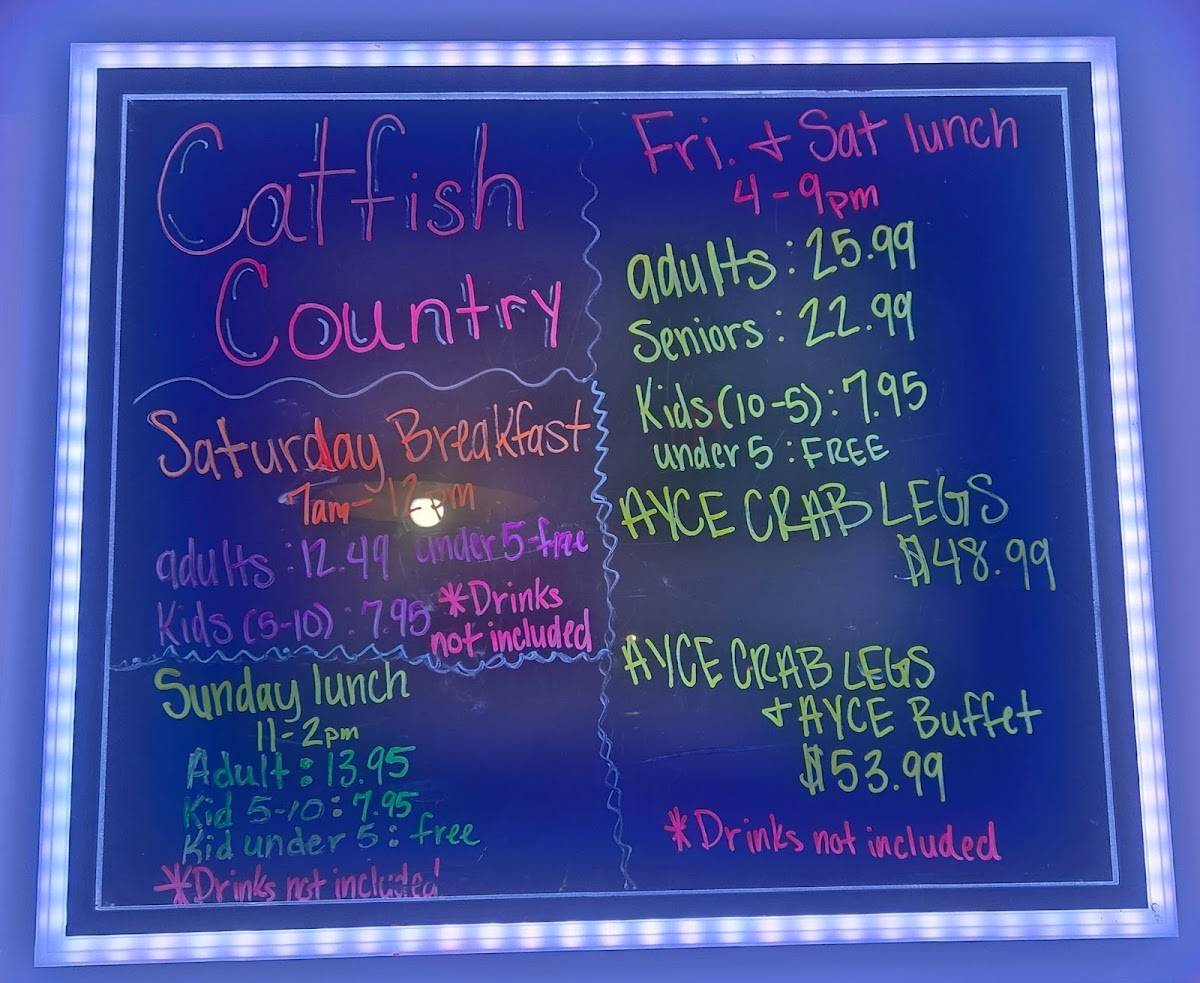 Catfish
Country
Saturday Breakfast
7am - 12pm
adults : 12.49 under 5-free
Kids (5-10) : 7.95 *Drinks
not included
Sunday lunch
11-2pm
Adult : 13.95
Kid 5-10 : 7.95
Kid under 5 : free
*Drinks not included
Fri. + Sat lunch
4-9pm
adults : 25.99
Seniors : 22.99
Kids (10-5) : 7.95
under 5 : FREE
AYCE CRAB LEGS
$48.99
AYCE CRAB LEGS
+ AYCE Buffet
$53.99
*Drinks not included